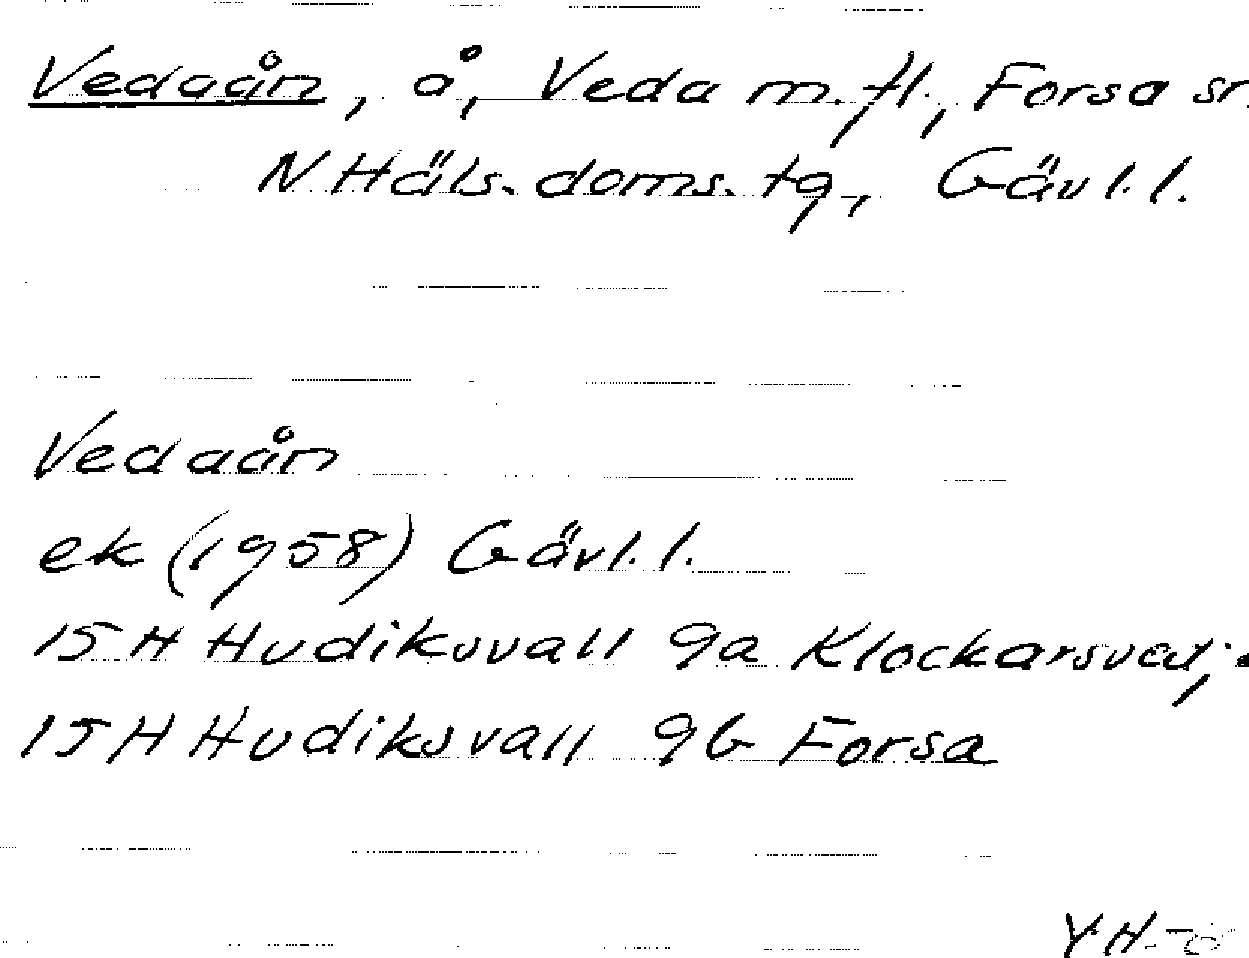 Vedaån, å, Veda m.fl., Forsa sn.
N Häls. doms. tg, Gävl. l.
Vedaån
ek (1958) Gävl. l.
15 H Hudiksvall 9a Klockarsved;
15 H Hudiksvall 9b Forsa